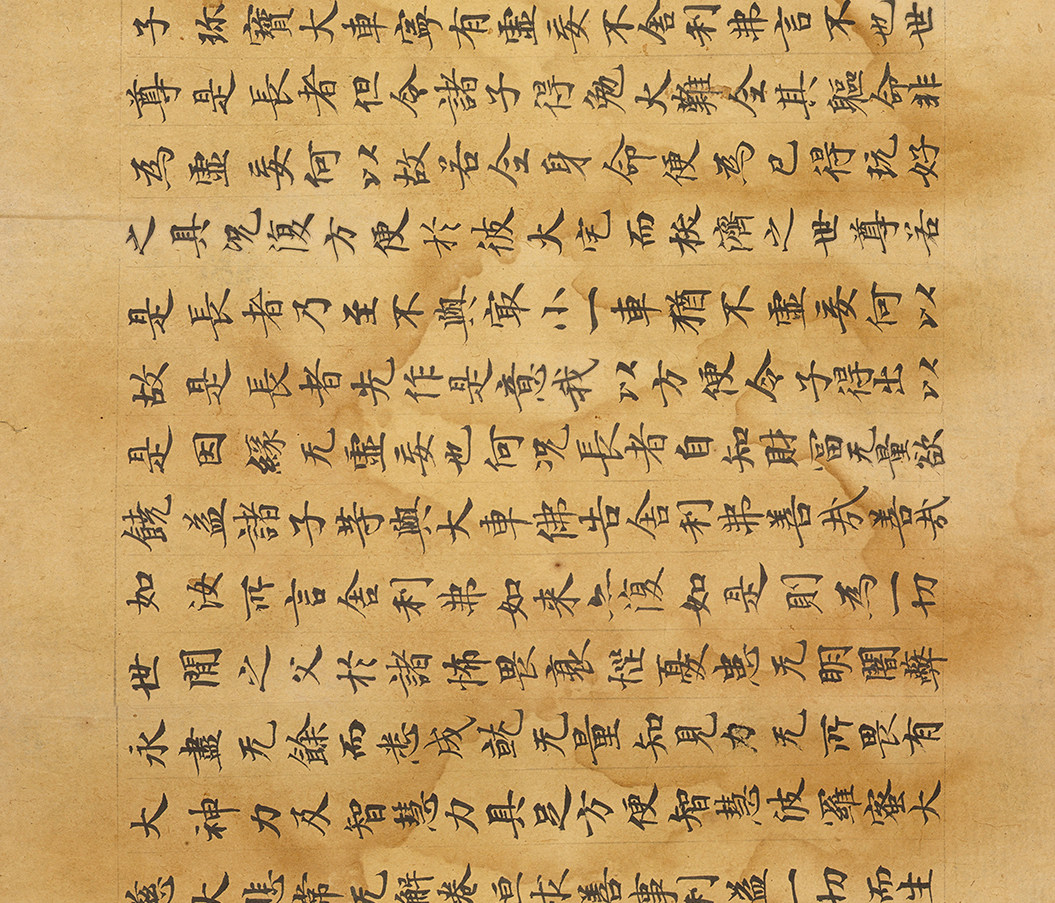 子珎寶大車寧有虛妄不舍利弗言不也世
尊是長者但令諸子得勉大難全其軀命非
為虛妄何以故若全身命便為已得玩好
之具況復方便於彼火宅而拔濟之世尊若
是長者乃至不與冣小一車猶不虛妄何以
故是長者先作是意我以方便令子得出以
是因緣无虛妄也何況長者自知財冨无量欲
饒益諸子等與大車佛告舍利弗善哉善哉
如汝所言舍利弗如来亦復如是則為一切
世間之父於諸怖畏衰惱憂患无明闇蔽
永盡无餘而悉成就无量知見力无所畏有
大神力及智慧力具足方便智慧波羅蜜大
慈大悲常无懈惓恒求善事利益一切而生